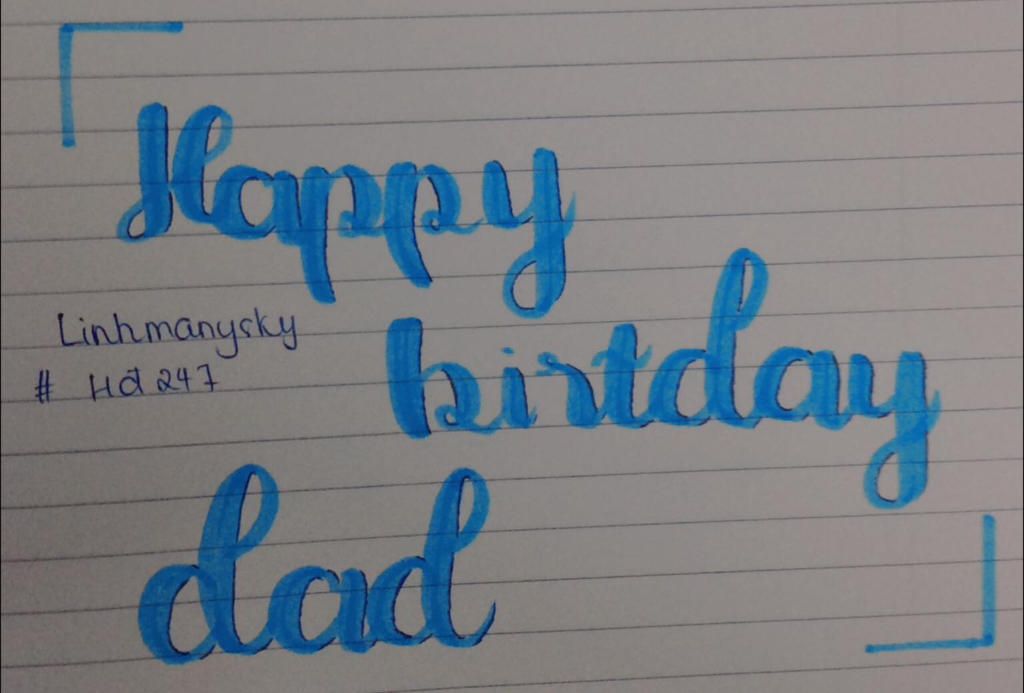 Happy
birtday
dad
Linhmanysky
# Hđ 247